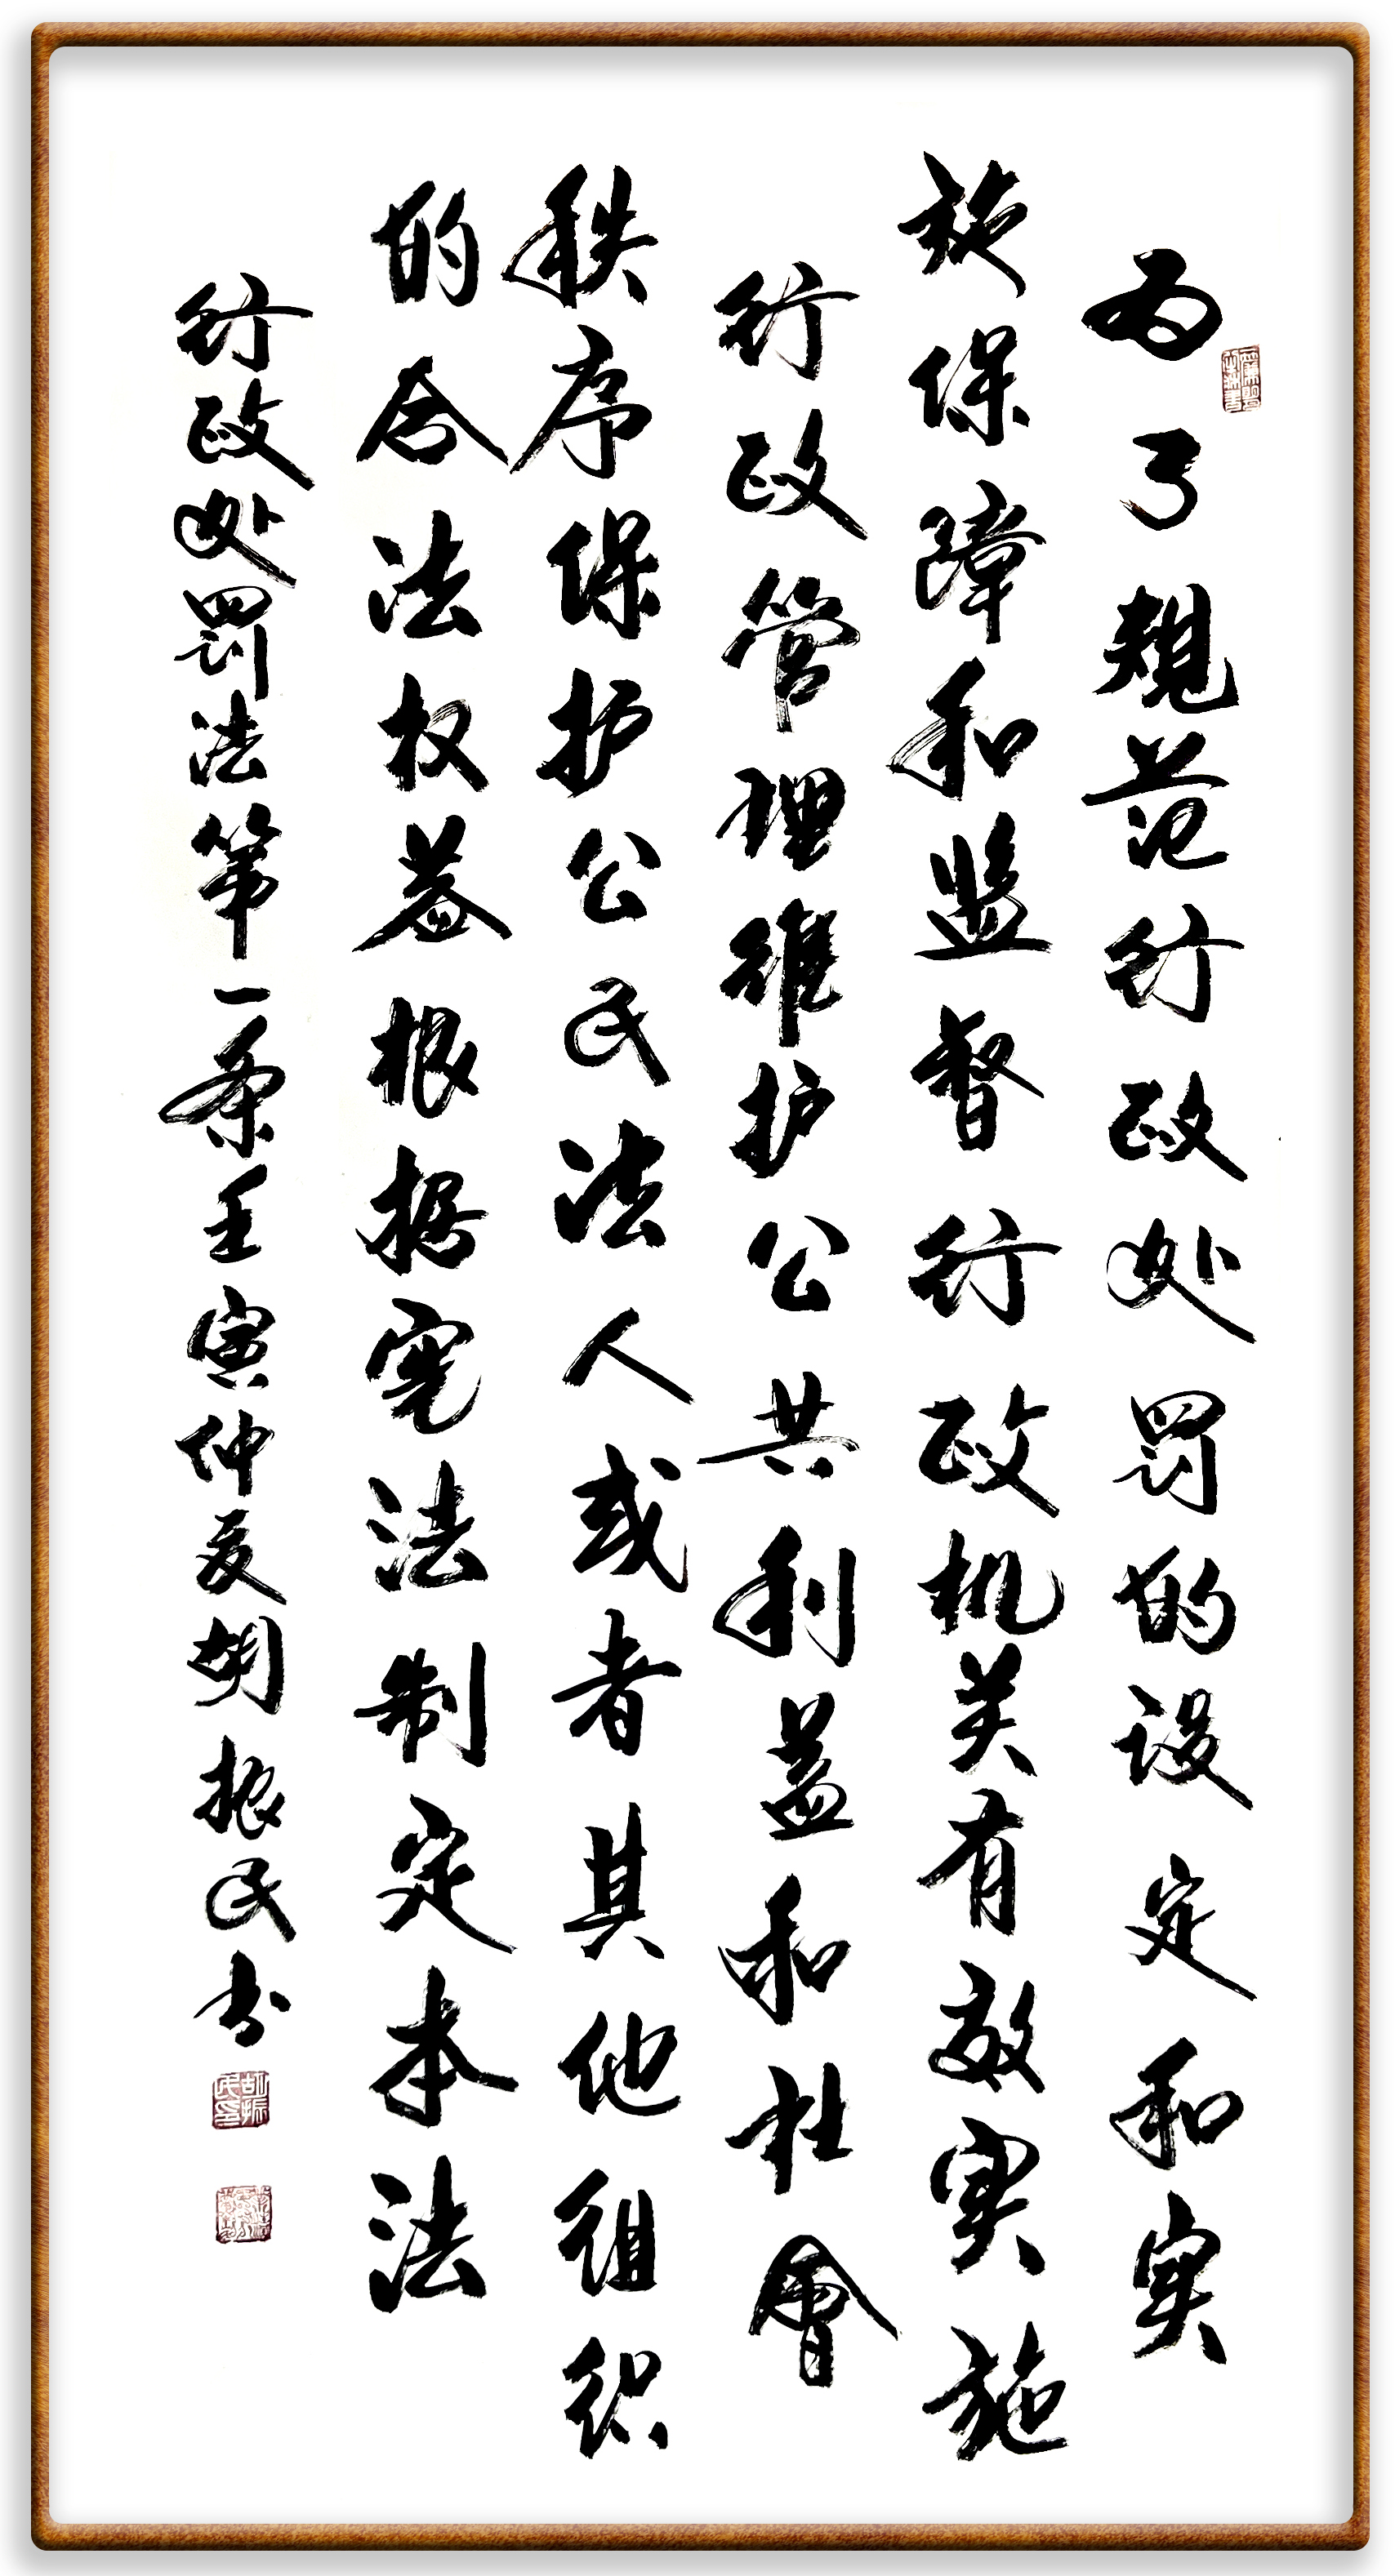 为了規范行政处罚的设定和实
施保障和监督行政机关有效实施
行政管理维护公共利益和社會
秩序保护公民法人或者其他组织
的合法权益根据宪法制定本法
行政处罚法第一条壬寅仲夏胡振民书
胡振民印